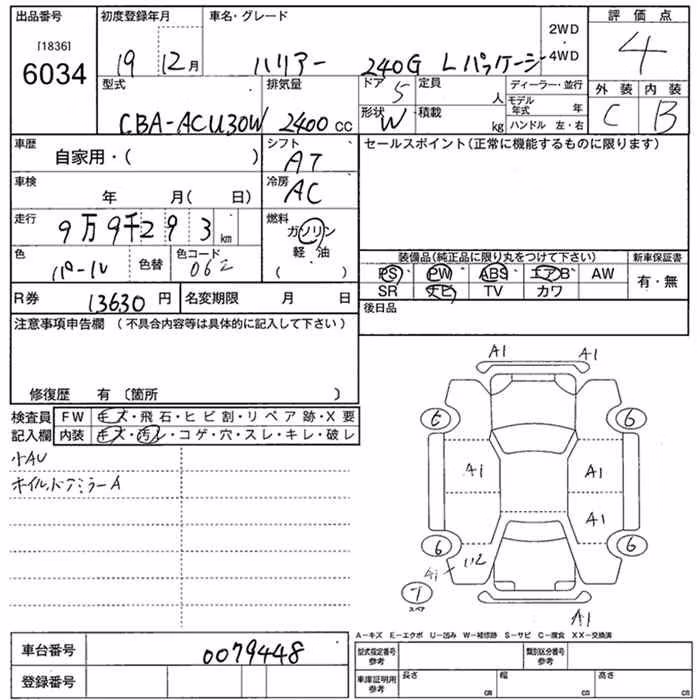 出品番号 初度登録年月 車名・グレード 2WD・4WD 評価点
[1836]
6034 19 12月 ハリアー 240G Lパッケージ 4
型式 排気量 ドア 5 定員 人 ディーラー・並行 外装 内装
CBA-ACU30W 2400cc 形状 W 積載 kg モデル年式 年 C B
ハンドル 左・右
車歴 自家用・( ) シフト AT セールスポイント(正常に機能するものに限ります)
車検 年 月( 日) 冷房 AC
走行 9万9千293km 燃料 ガソリン
軽・油
( )
色 パール 色替 色コード 062 装備品(純正品に限り丸をつけて下さい) 新車保証書
PS PW ABS エアB AW 有・無
SR ナビ TV カワ
R券 13630円 名変期限 月 日 後日品
注意事項申告欄 (不具合内容等は具体的に記入して下さい)
修復歴 有〔箇所 〕
検査員 FW キズ・飛石・ヒビ割・リペア跡・X要
記入欄 内装 キズ・汚レ・コゲ・穴・スレ・キレ・破レ
小AU
ホイル、ドアミラーA
A1 A1
6 6
A1 A1
A1
6 6
A1 U2
T
スペア
A1
A-キズ E-エクボ U-凹み W-補修跡 S-サビ C-腐食 XX-交換済
車台番号 0079448 型式指定番号 参考 類別区分番号 参考
登録番号 車庫証明用 参考 長さ cm 幅 cm 高さ cm